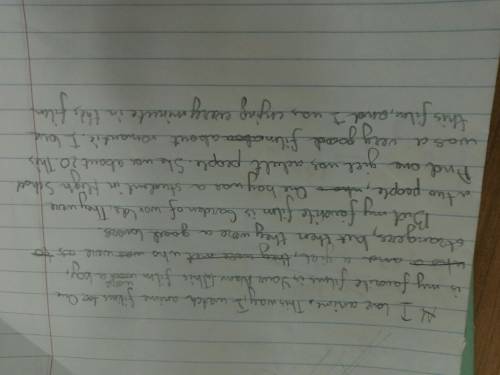 I love anime. This way, I watch anime films too. One
is my favorite film is Your Name. This film were a boy,
and a girl, who were as
strangers, but then they were a good lovers
But my favorite film is Garden of worlds. They were
a two people, One boy was a student in High School
And one girl was adult people. She was about 20. This
was a very good film about romantic I love
this film, and I was enjoy every minute in this film